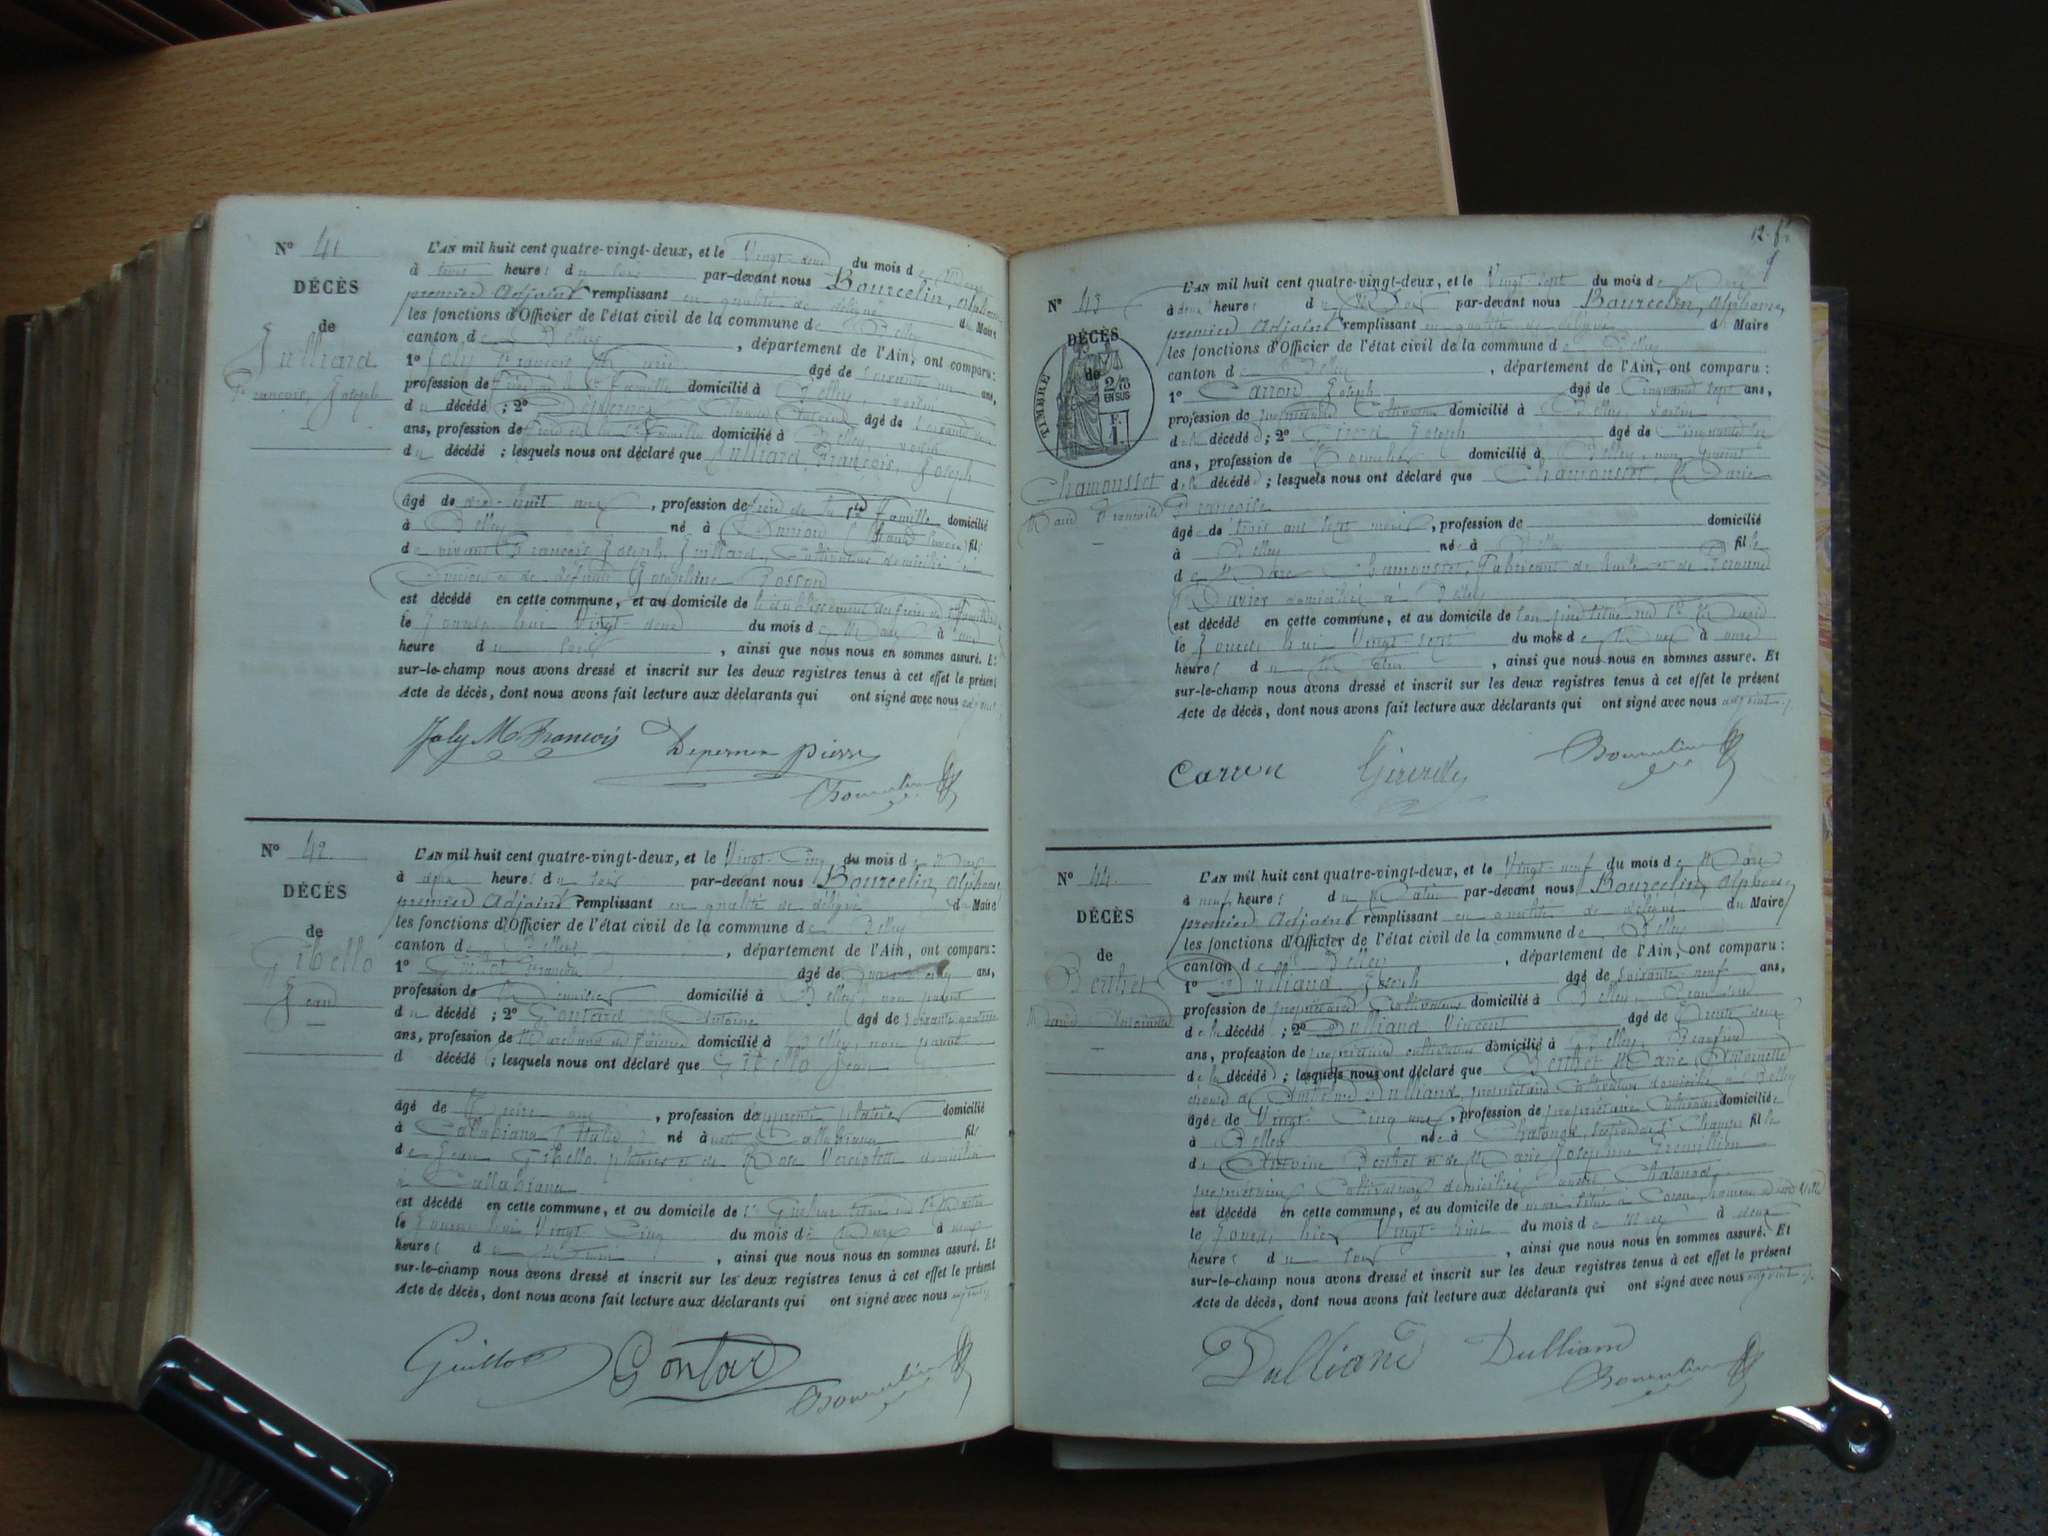 N° 41
DÉCÈS
de
Julliard
François, Joseph
L'AN mil huit cent quatre-vingt-deux, et le Vingt-deux du mois de Mars
à heure du soir par-devant nous Bourcelin, Alphonse
premier Adjoint remplissant en qualité de délégué du Maire
les fonctions d'Officier de l'état civil de la commune de Belley
canton de Belley, département de l'Ain, ont comparu :
1° Joly François Marie âgé de soixante un ans,
profession de frère de la Ste Famille domicilié à Belley voisin
du décédé ; 2° Depernex âgé de
ans, profession de frère de la Ste Famille domicilié à Belley voisin
du décédé ; lesquels nous ont déclaré que Julliard, François, Joseph
âgé de dix-huit ans, profession de frère de la Ste Famille domicilié
à Belley né à (Haute Savoie) fils
de vivant François Joseph Julliard, Cultivateur domicilié à
et de défunte
est décédé en cette commune, et au domicile de l'établissement des frères de la Ste Famille
le Jourd'hui Vingt deux du mois de Mars à une
heure du soir, ainsi que nous nous en sommes assuré. Et
sur-le-champ nous avons dressé et inscrit sur les deux registres tenus à cet effet le présent
Acte de décès, dont nous avons fait lecture aux déclarants qui ont signé avec nous adjoint
Joly M. François Depernex pierre
Bourcelin
N° 42
DÉCÈS
de
Gibello
Jean
L'AN mil huit cent quatre-vingt-deux, et le Vingt-Cinq du mois de Mars
à heure du soir par-devant nous Bourcelin, Alphonse
premier Adjoint remplissant en qualité de délégué du Maire
les fonctions d'Officier de l'état civil de la commune de Belley
canton de Belley, département de l'Ain, ont comparu :
1° François âgé de ans,
profession de domicilié à Belley, non parent
du décédé ; 2° Gontard Antoine âgé de soixante quatorze
ans, profession de Marchand de domicilié à Belley, non parent
d décédé ; lesquels nous ont déclaré que Gibello Jean
âgé de Treize ans, profession de apprenti plâtrier domicilié
à Callabiana (Italie) né à Callabiana fils
de Jean Gibello plâtrier et de Rose domiciliés
à Callabiana
est décédé en cette commune, et au domicile de
le Jourd'hui Vingt Cinq du mois de Mars à neuf
heure du matin, ainsi que nous nous en sommes assuré. Et
sur-le-champ nous avons dressé et inscrit sur les deux registres tenus à cet effet le présent
Acte de décès, dont nous avons fait lecture aux déclarants qui ont signé avec nous adjoint
Guillot Gontard
Bourcelin
12. fr
9
N° 43
DÉCÈS
de
TIMBRE
2/10
EN SUS
F.
1.
Chamousset
Marie Françoise
L'AN mil huit cent quatre-vingt-deux, et le Vingt-sept du mois de Mars
à deux heure du Soir par-devant nous Bourcelin, Alphonse,
premier Adjoint remplissant en qualité de délégué du Maire
les fonctions d'Officier de l'état civil de la commune de Belley
canton de Belley, département de l'Ain, ont comparu :
1° Carron Joseph âgé de Cinquante sept ans,
profession de propriétaire Cultivateur domicilié à Belley, voisin
de la décédée ; 2° Joseph âgé de Cinquante
ans, profession de domicilié à Belley, non parent
de la décédée ; lesquels nous ont déclaré que Chamousset, Marie
Françoise
âgée de trois ans sept mois, profession de domicilié
à Belley née à Belley fille
de Marc Chamousset, Fabricant de huile et de
Davier domiciliés à Belley
est décédé en cette commune, et au domicile de
le Jourd'hui Vingt sept du mois de Mars à onze
heure du Matin, ainsi que nous nous en sommes assuré. Et
sur-le-champ nous avons dressé et inscrit sur les deux registres tenus à cet effet le présent
Acte de décès, dont nous avons fait lecture aux déclarants qui ont signé avec nous adjoint
Carron Bourcelin
N° 44
DÉCÈS
de
Berthet
Marie Antoinette
L'AN mil huit cent quatre-vingt-deux, et le Vingt-neuf du mois de Mars
à neuf heure du Matin par-devant nous Bourcelin, Alphonse,
premier Adjoint remplissant en qualité de délégué du Maire
les fonctions d'Officier de l'état civil de la commune de Belley
canton de Belley, département de l'Ain, ont comparu :
1° Dulliand Joseph âgé de Soixante-neuf ans,
profession de propriétaire Cultivateur domicilié à Belley,
de la décédée ; 2° Dulliand Vincent âgé de Trente deux
ans, profession de propriétaire cultivateur domicilié à Belley, Beaufrère
de la décédée ; lesquels nous ont déclaré que Berthet Marie, Antoinette
épouse de Dulliand, propriétaire Cultivateur domicilié à Belley
âgée de Vingt Cinq ans, profession de propriétaire Cultivateur domiciliée
à Belley née à Chatonod, fille
de Antoine Berthet et de Marie Josephine
propriétaires Cultivateurs domiciliés à Chatonod
est décédé en cette commune, et au domicile de
le Jour, hier Vingt-huit du mois de Mars à deux
heure du soir, ainsi que nous nous en sommes assuré. Et
sur-le-champ nous avons dressé et inscrit sur les deux registres tenus à cet effet le présent
Acte de décès, dont nous avons fait lecture aux déclarants qui ont signé avec nous adjoint
Dulliand Dulliand
Bourcelin